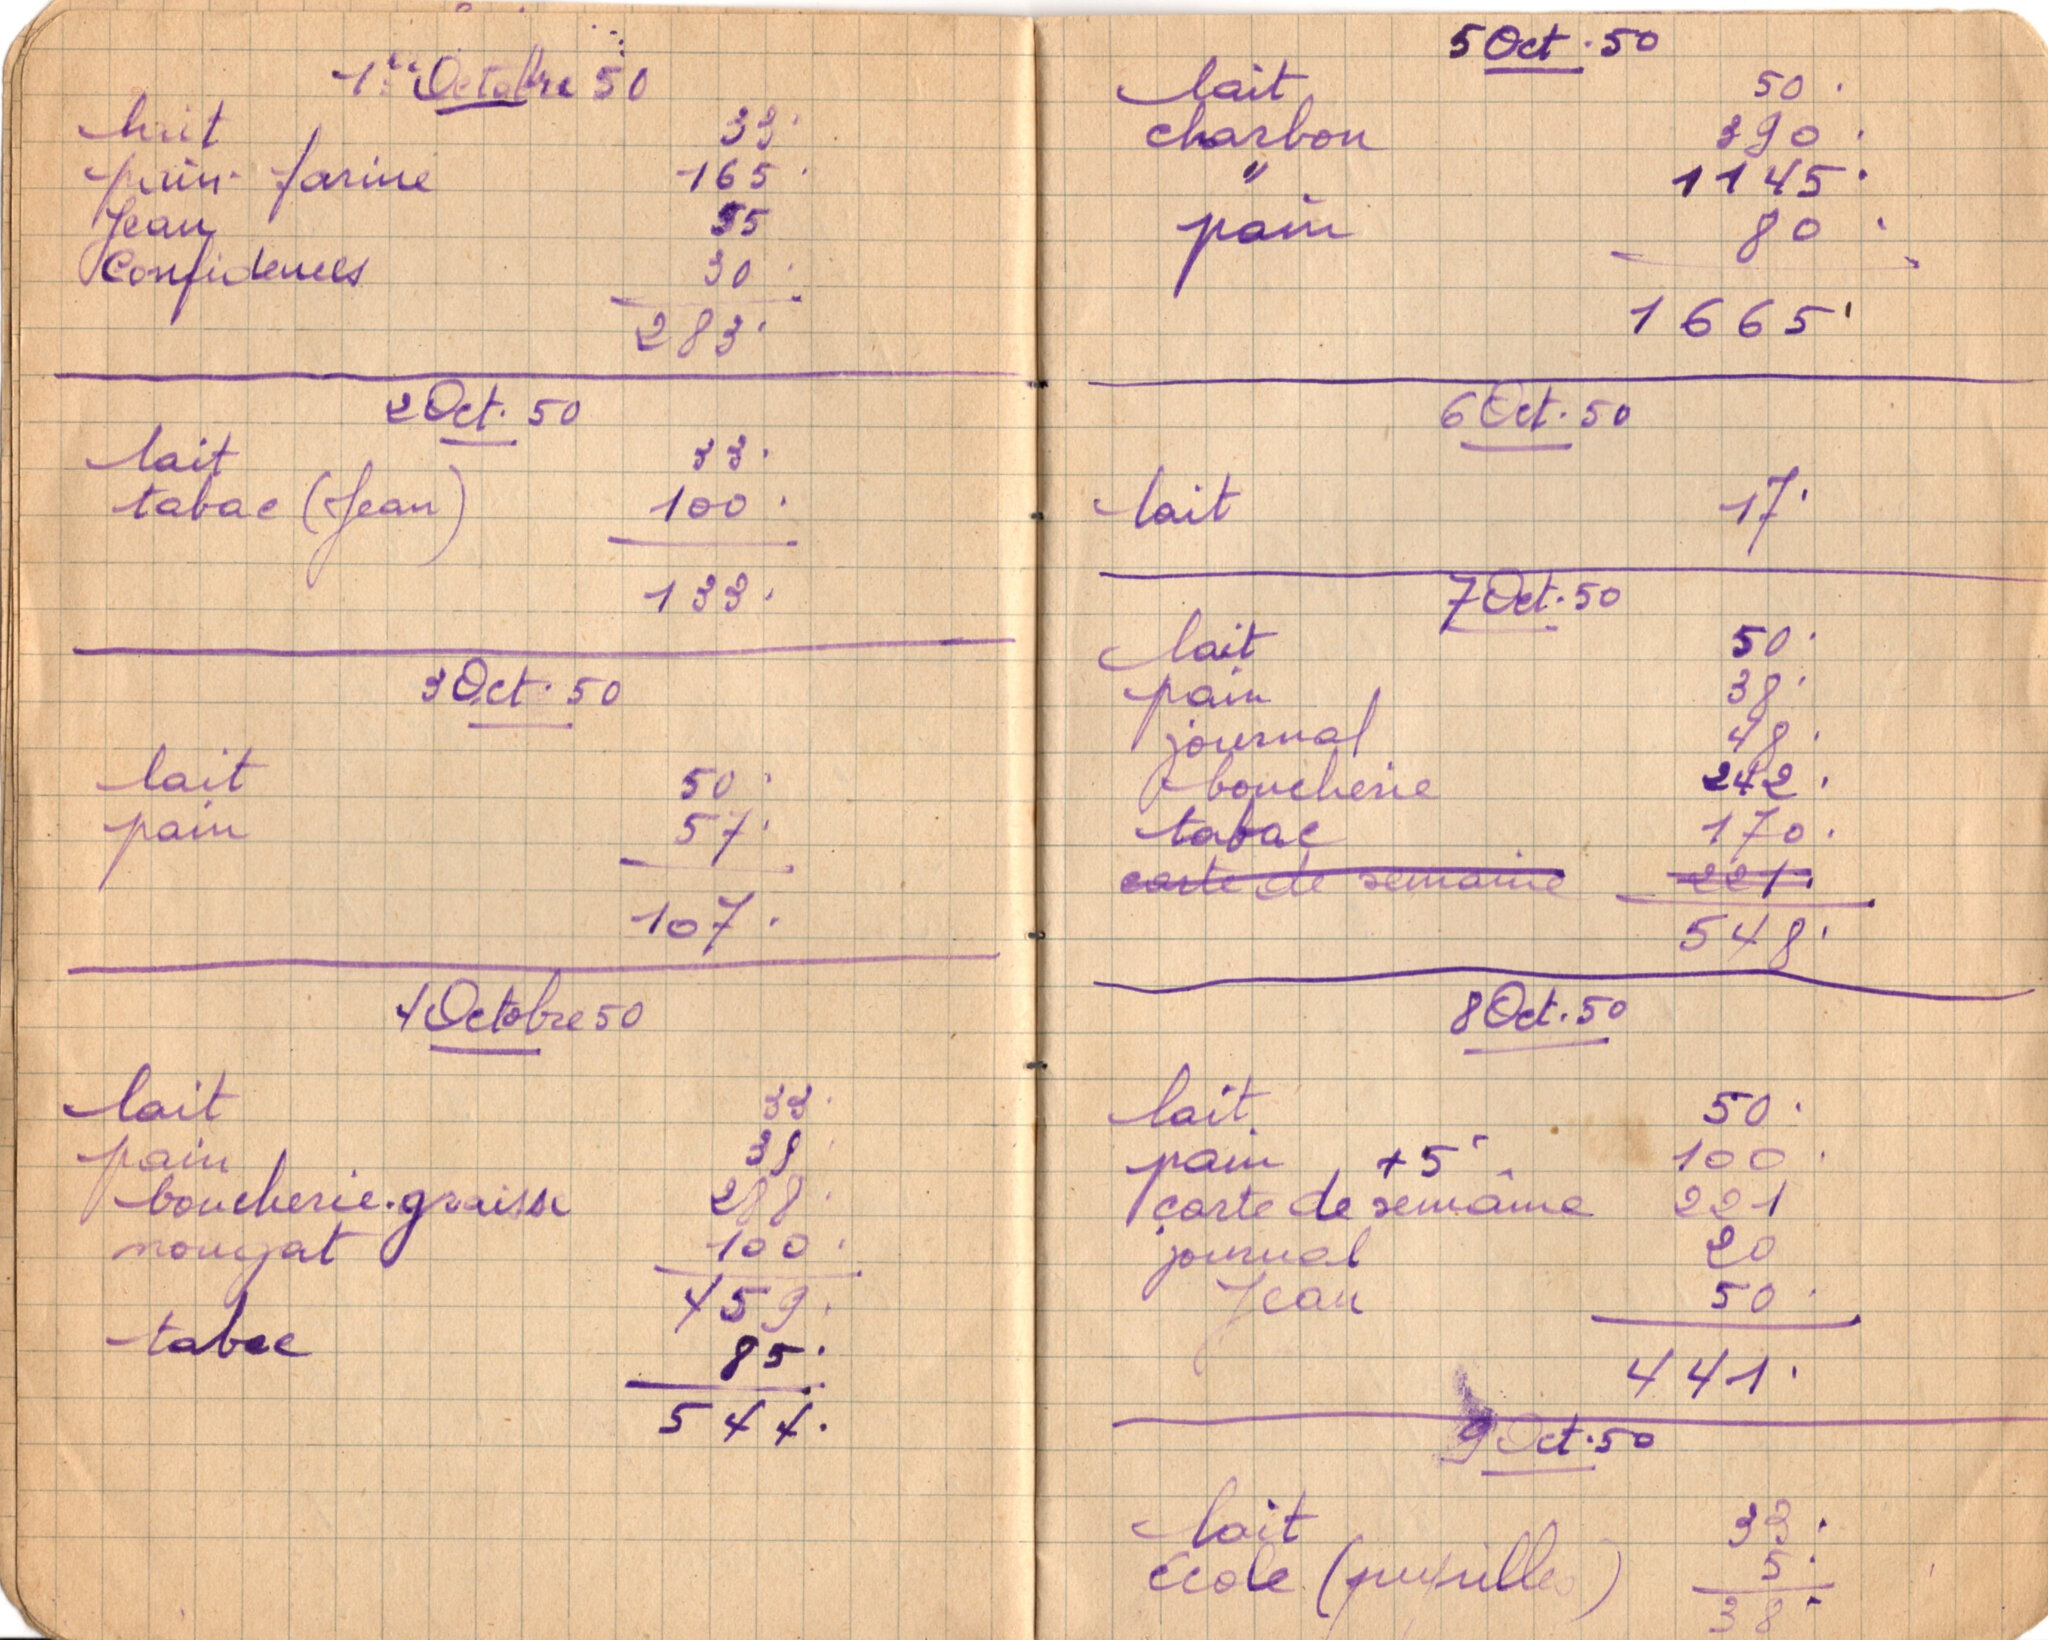 1er Octobre 50
lait 33.
pain. farine 165.
Jean 55
Confidences 30.
283.
2 Oct. 50
lait 33.
tabac (Jean) 100.
133.
3 Oct. 50
lait 50.
pain 57.
107.
4 Octobre 50
lait 33.
pain 38.
boucherie. graisse 288.
nougat 100.
459.
tabac 85.
544.
5 Oct. 50
lait 50.
charbon 390.
" 1145.
pain 80.
1665.
6 Oct. 50
lait 17.
7 Oct. 50
lait 50.
pain 38.
journal 48.
boucherie 242.
tabac 170.
carte de semaine 221.
548.
8 Oct. 50
lait 50.
pain +5 100.
carte de semaine 221
journal 20
Jean 50.
441.
9 Oct. 50
lait 33.
école (pupilles) 5.
38.